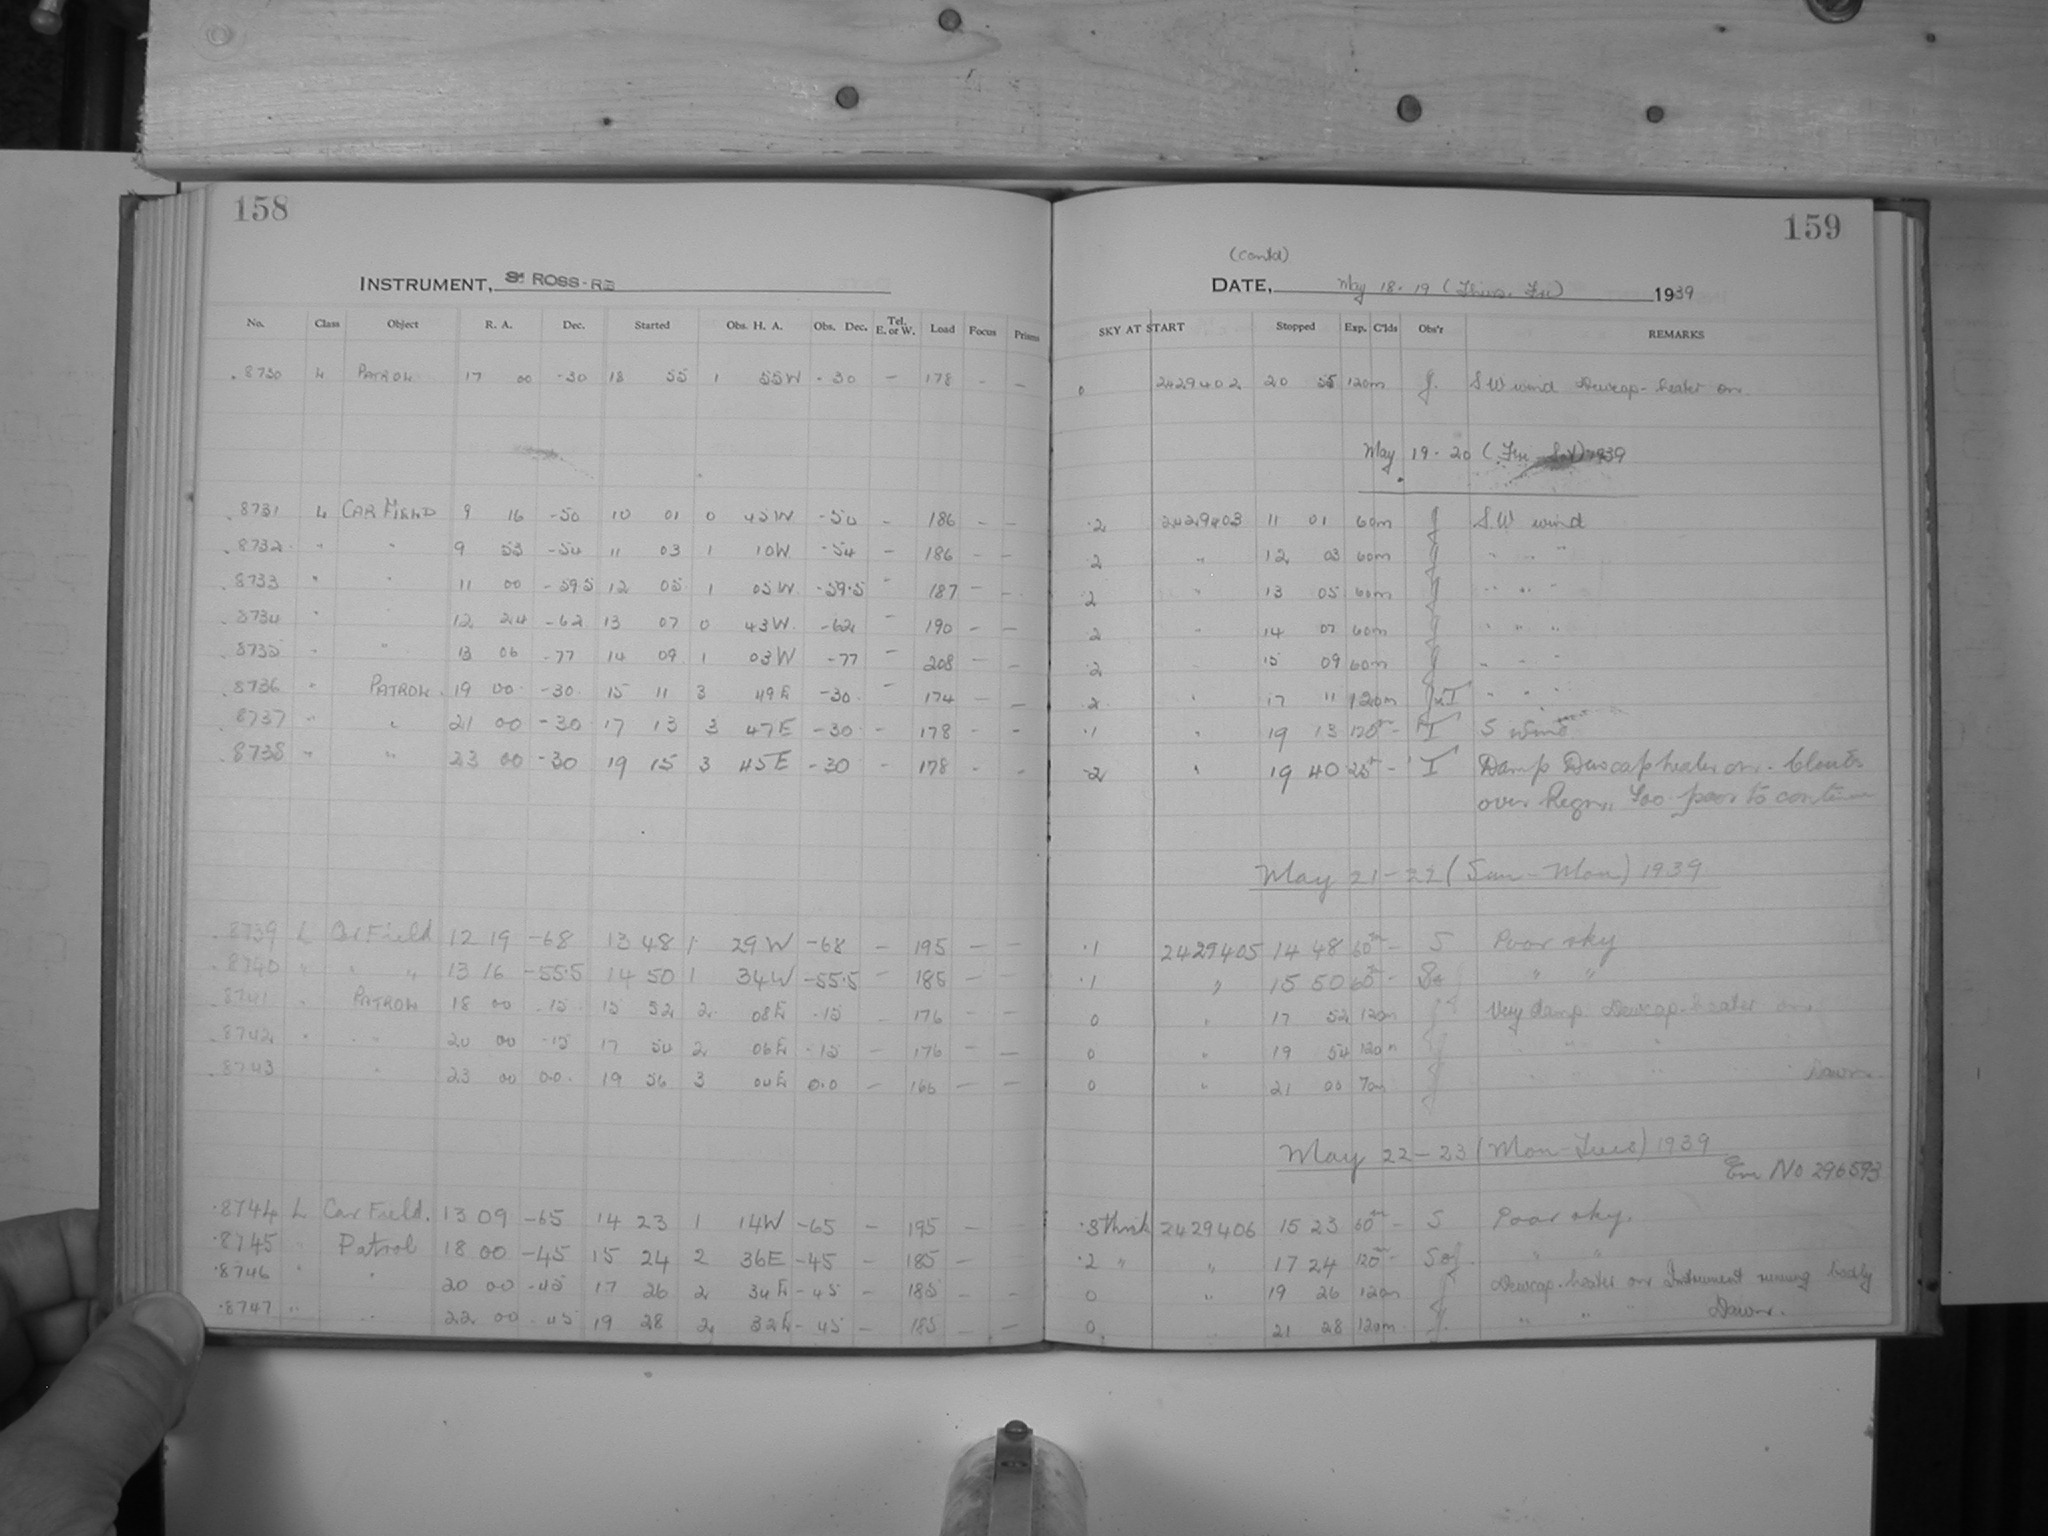 158
INSTRUMENT, ROSS-
No. Class Object R. A. Dec. Started Obs. H. A. Obs. Dec. Tel. E. or W. Load Focus Prisms
.8730 L PATROL 17 00 -30 18 55 1 55W -30 — 178 - —
.8731 L CAR FIELD 9 16 -50 10 01 0 45W -50 - 186 - -
.8732 " " 9 53 -54 11 03 1 10W -54 - 186 - -
.8733 " " 11 00 -59.5 12 05 1 05W -59.5 - 187 - -
.8734 " " 12 24 -62 13 07 0 43W -62 - 190 - -
.8735 " " 13 06 -77 14 09 1 03W -77 - 208 - -
.8736 " PATROL 19 00 -30 15 11 3 49E -30 - 174 - -
.8737 " " 21 00 -30 17 13 3 47E -30 - 178 - -
.8738 " " 23 00 -30 19 15 3 45E -30 - 178 - -
.8739 L Car Field 12 19 -68 13 48 1 29W -68 - 195 - -
.8740 " " " 13 16 -55.5 14 50 1 34W -55.5 - 185 - -
.8741 " PATROL 18 00 -15 15 52 2 08E -15 - 176 - -
.8742 " " 20 00 -15 17 54 2 06E -15 - 176 - -
.8743 " 23 00 00 19 56 3 04E 0.0 - 166 - -
.8744 L Car Field. 13 09 -65 14 23 1 14W -65 - 195 -
.8745 " Patrol 18 00 -45 15 24 2 36E -45 - 185 - -
.8746 " " 20 00 -45 17 26 2 34E -45 - 185 - -
.8747 " " 22 00 -45 19 28 2 32E -45 - 185 - -
159
(contd)
DATE, May 18-19 (Thurs. Fri) 1939
SKY AT START Stopped Exp. C'lds Obs'r REMARKS
0 2429402 20 55 120m J. SW wind Dewcap-heater on
May 19-20 (Fri Sat) 1939
.2 2429403 11 01 60m J SW wind
.2 " 12 03 60m J " " "
.2 " 13 05 60m J " " "
.2 " 14 07 60m J " " "
.2 15 09 60m J " " "
.2 " 17 11 120m " " "
.1 " 19 13 120m - T S wind
.2 " 19 40 25m - T Damp Dewcap heater on. Clouds
over Region, Too poor to continue
May 21-22 (Sun-Mon) 1939
.1 2429405 14 48 60m - S Poor sky
.1 " 15 50 60m - " "
0 " 17 52 120m J Very damp Dewcap-heater on
0 " 19 54 120m J " " "
0 " 21 00 J " " " Dawn.
May 22-23 (Mon-Tues) 1939
Em No 296593
.3 thick 2429406 15 23 60m - S Poor sky.
.2 " " 17 24 120m - " "
0 " 19 26 120m J Dewcap-heater on Instrument running badly
0 21 28 120m J. " " " Dawn.